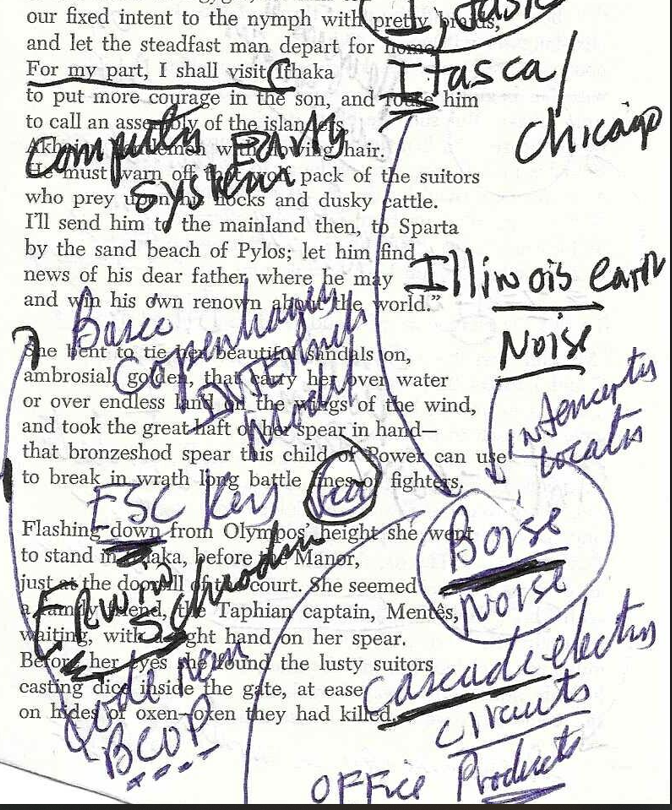 our fixed intent to the nymph with pretty braids,
and let the steadfast man depart for home.
For my part, I shall visit Ithaka
Itasca/
to put more courage in the son, and rouse him
to call an assembly of the islanders,
Chicago
Akhaian gentlemen with flowing hair.
Computer Early
He must warn off that wolf pack of the suitors
System
who prey upon his flocks and dusky cattle.
I'll send him to the mainland then, to Sparta
by the sand beach of Pylos; let him find
news of his dear father where he may
Illinois earth
and win his own renown about the world."
Noise
She bent to tie her beautiful sandals on,
Copenhagen
ambrosial, golden, that carry her over water
or over endless land on the wings of the wind,
Model
and took the great haft of her spear in hand—
that bronzeshod spear this child of Power can use
to break in wrath long battle lines of fighters.
ESC Key
Flashing down from Olympos' height she went
Boise
to stand in Ithaka, before the Manor,
just at the doorsill of the court. She seemed
Noise
Erwin
a family friend, the Taphian captain, Mentês,
waiting, with a light hand on her spear.
Before her eyes she found the lusty suitors
cascade
casting dice inside the gate, at ease
Circuits
on hides of oxen—oxen they had killed.
BCOP
OFFice Products